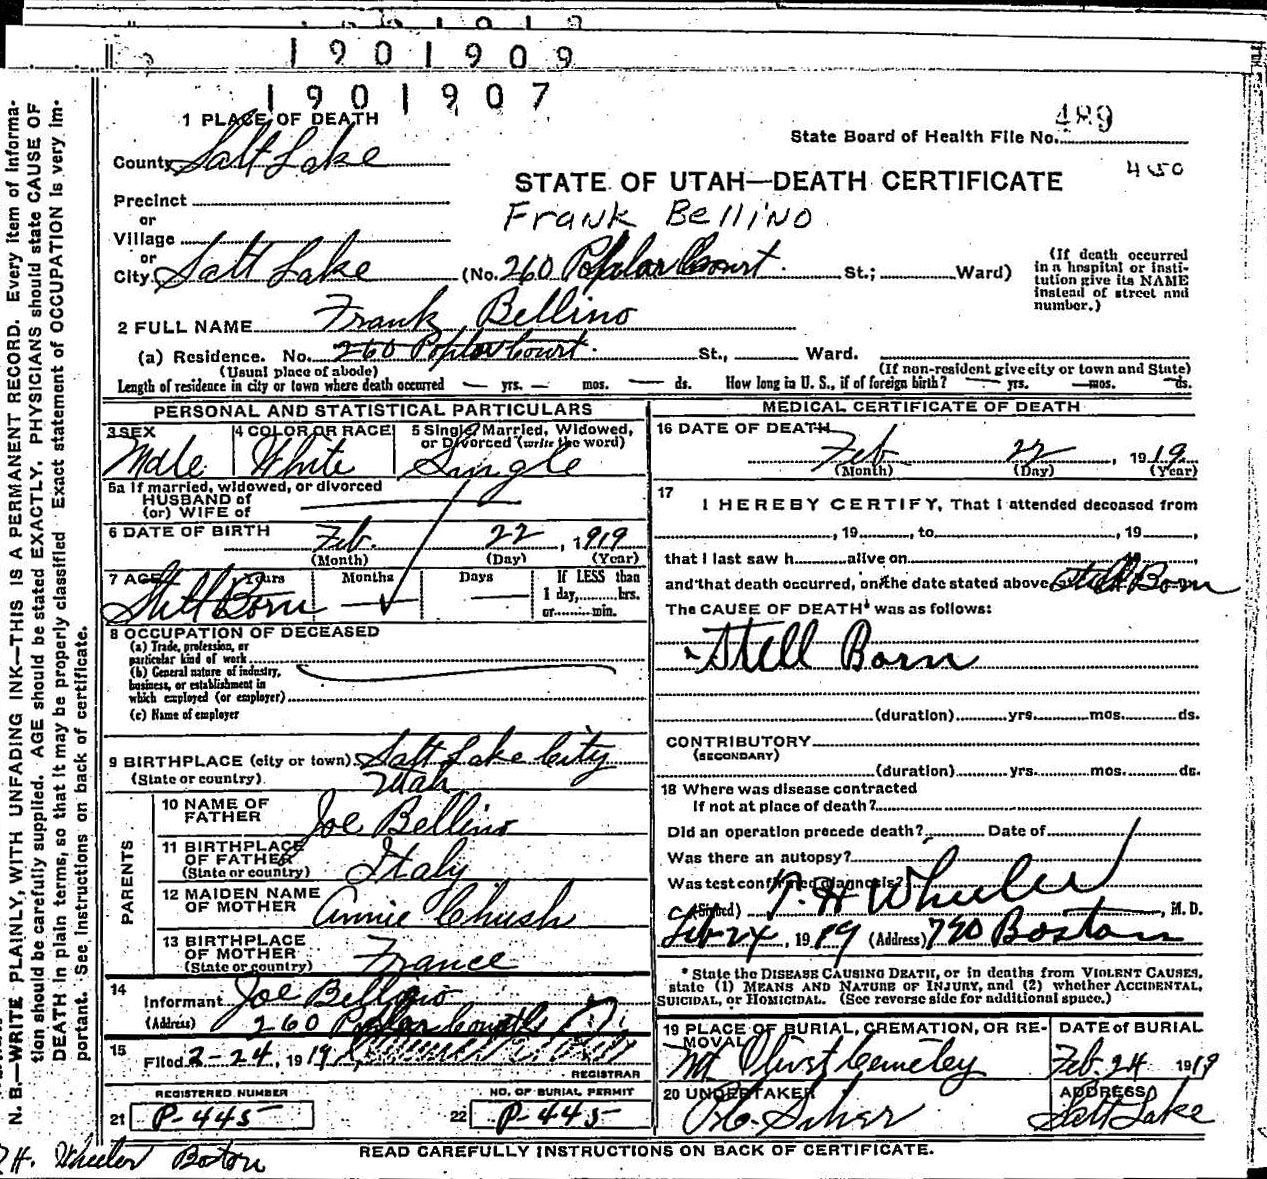 1901909
1901907
1 PLACE OF DEATH
County Salt Lake
State Board of Health File No. 489
450
STATE OF UTAH—DEATH CERTIFICATE
Frank Bellino
Precinct
or
Village
or
City Salt Lake (No. 260 Poplar Court. St.; Ward)
(If death occurred in a hospital or insti-
tution give its NAME instead of street and number.)
2 FULL NAME Frank Bellino
(a) Residence. No. 260 Poplar Court. St., Ward.
(Usual place of abode) (If non-resident give city or town and State)
Length of residence in city or town where death occurred — yrs. — mos. — ds. How long in U. S., if of foreign birth? — yrs. — mos. — ds.
PERSONAL AND STATISTICAL PARTICULARS
3 SEX Male
4 COLOR OR RACE White
5 Single, Married, Widowed, or Divorced (write the word) Single
5a If married, widowed, or divorced
HUSBAND of
(or) WIFE of
6 DATE OF BIRTH Feb. 22, 1919
(Month) (Day) (Year)
7 AGE Years Months Days If LESS than
Still Born — — 1 day, hrs.
or min.
8 OCCUPATION OF DECEASED
(a) Trade, profession, or
particular kind of work
(b) General nature of industry,
business, or establishment in
which employed (or employer)
(c) Name of employer
9 BIRTHPLACE (city or town) Salt Lake City
(State or country) Utah
PARENTS
10 NAME OF FATHER Joe Bellino
11 BIRTHPLACE OF FATHER (State or country) Italy
12 MAIDEN NAME OF MOTHER Annie Chush
13 BIRTHPLACE OF MOTHER (State or country) France
14 Informant Joe Bellino
(Address) 260 Poplar Court
15 Filed 2-24, 1919,
REGISTRAR
REGISTERED NUMBER
21 P-445
NO. OF BURIAL PERMIT
22 P-445
MEDICAL CERTIFICATE OF DEATH
16 DATE OF DEATH
Feb 22, 1919
(Month) (Day) (Year)
17
I HEREBY CERTIFY, That I attended deceased from
, 19 , to , 19 ,
that I last saw h alive on 19 ,
and that death occurred, on the date stated above Still Born
The CAUSE OF DEATH* was as follows:
Stell Born
(duration) yrs. mos. ds.
CONTRIBUTORY
(SECONDARY)
(duration) yrs. mos. ds.
18 Where was disease contracted
if not at place of death?
Did an operation precede death? Date of
Was there an autopsy?
Was test confirmed diagnosis?
(Signed) T. H Wheeler, M. D.
Feb 24, 1919 (Address) 790 Boston
* State the DISEASE CAUSING DEATH, or in deaths from VIOLENT CAUSES,
state (1) MEANS AND NATURE OF INJURY, and (2) whether ACCIDENTAL,
SUICIDAL, or HOMICIDAL. (See reverse side for additional space.)
19 PLACE OF BURIAL, CREMATION, OR RE-
MOVAL
Mt Olivet Cemetery
DATE of BURIAL
Feb. 24 1919
20 UNDERTAKER
ADDRESS
Salt Lake
READ CAREFULLY INSTRUCTIONS ON BACK OF CERTIFICATE.
H. Wheeler Boston
N. B.—WRITE PLAINLY, WITH UNFADING INK—THIS IS A PERMANENT RECORD. Every item of informa-
tion should be carefully supplied. AGE should be stated EXACTLY. PHYSICIANS should state CAUSE OF
DEATH in plain terms, so that it may be properly classified. Exact statement of OCCUPATION is very im-
portant. See instructions on back of certificate.